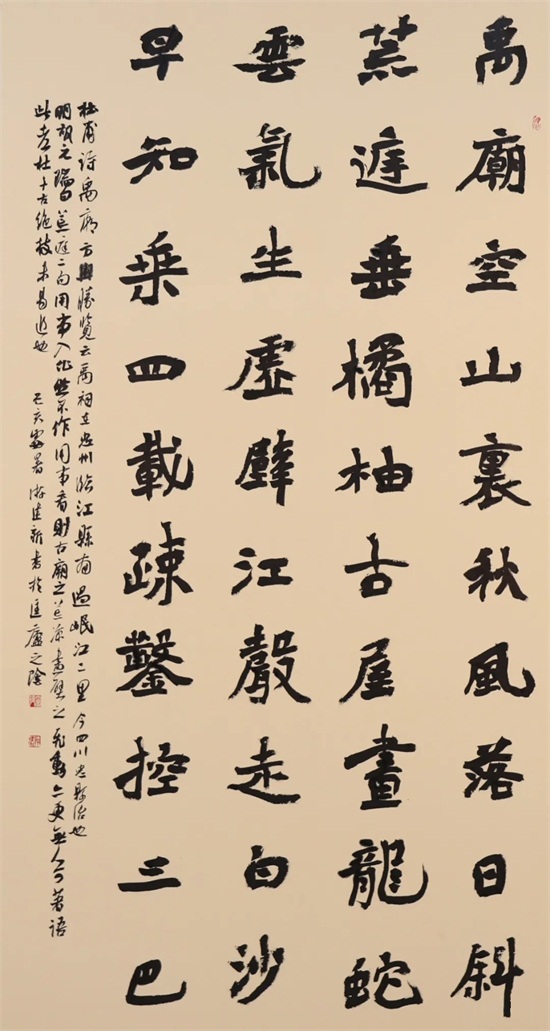 禹廟空山裏秋風落日斜
荒庭垂橘柚古屋畫龍蛇
雲氣生虛壁江聲走白沙
早知乘四載疎鑿控三巴
杜甫詩禹廟方輿勝覽云禹祠在忠州臨江縣南過岷江二里今四川忠縣治也
明胡元瑞曰荒庭二句用事入化然不作用事看則古廟之荒涼畫壁之飛動亦更無人可著語
此老杜千古絕技未易追也 己亥處暑游建新書於匡廬之陰